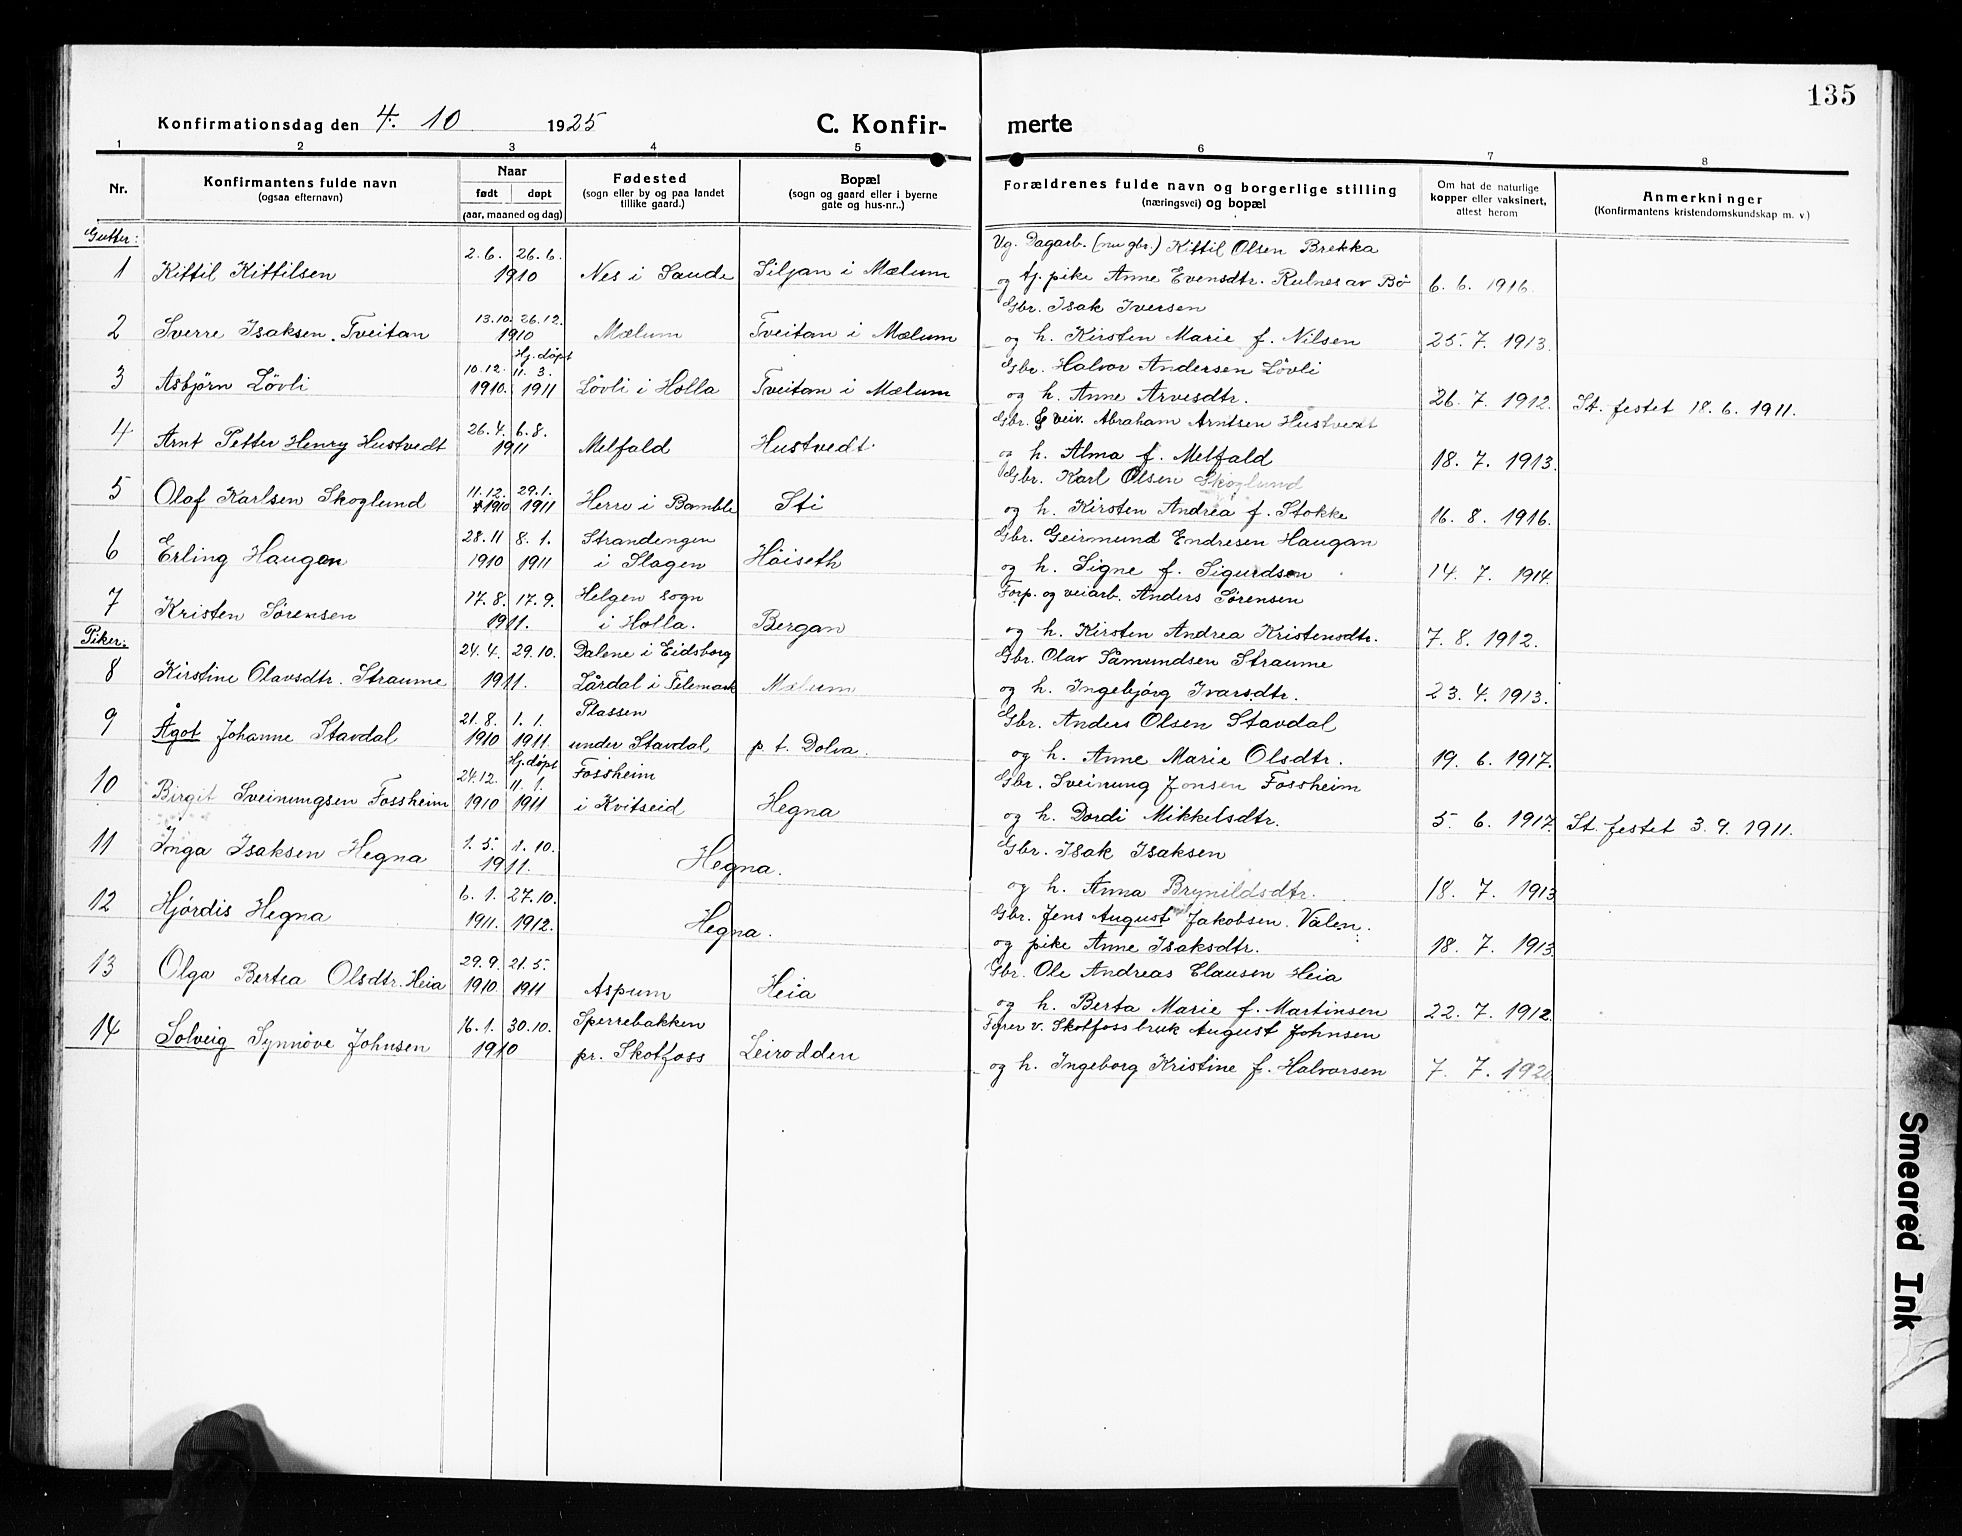 135
Konfirmationsdag den 4. 10 1925 C. Konfir- merte
1 2 3 4 5 6 7 8
Nr. Konfirmantens fulde navn (ogsaa efternavn) Naar født døpt (aar, maaned og dag) Fødested (sogn eller by og paa landet tillike gaard.) Bopæl (sogn og gaard eller i byerne gate og hus-nr..) Forældrenes fulde navn og borgerlige stilling (næringsvei) og bopæl Om hat de naturlige kopper eller vaksinert, attest herom Anmerkninger (Konfirmantens kristendomskundskap m. v.)
Gutter:
2. 6. 26. 6. Ug. Dagarb. (nu gbr.) Kittil Olsen Brekka
1 Kittil Kittilsen 1910 Nes i Saude Siljan i Mælum og tj. pike Anne Evensdtr. av Bø 6. 6. 1916.
13.10. 26.12. Gbr. Isak Iversen
2 Sverre Isaksen Tveitan 1910 Mælum Tveitan i Mælum og h. Kirsten Marie f. Nilsen 25. 7. 1913.
Hj. døpt
10.12. 11. 3. Gbr. Halvor Andersen Løvli
3 Asbjørn Løvli 1910. 1911 Løvli i Holla Tveitan i Mælum og h. Anne Arvesdtr. 26. 7. 1912. St. festet 18. 6. 1911.
26. 4. 6. 8. Gbr. & veiv. Abraham Arntsen Hustvedt
4 Arnt Petter Henry Hustvedt 1911 Melfald Hustvedt. og h. Alma f. Melfald 18. 7. 1913.
11.12. 29.1. Gbr. Karl Olsen Skoglund
5 Olaf Karlsen Skoglund 1910 1911 Herre i Bamble Sti og h. Kirsten Andrea f. Stokke 16. 8. 1916.
28. 11 8. 1. Strandengen Gbr. Geirmund Endresen Haugan
6 Erling Haugen 1910 1911 i Slagen Høiseth og h. Signe f. Sigurdsen 14. 7. 1914.
17. 8. 17. 9. Helgen sogn Forp. og veiarb. Anders Sørensen
7 Kristen Sørensen 1911. i Holla. Bergan og h. Kirsten Andrea Kristensdtr. 7. 8. 1912.
Piker:
24. 4. 29. 10. Dalene i Eidsborg Gbr. Olav Såmundsen Straume
8 Kirstine Olavsdtr. Straume 1911. Lårdal i Telemark Mælum og h. Ingebjørg Ivarsdtr. 23. 4. 1913.
21. 8. 1. 1. Plassen Gbr. Anders Olsen Stavdal
9 Ågot Johanne Stavdal 1910 1911. under Stavdal p. t. Dolva. og h. Anne Marie Olsdtr. 19. 6. 1917.
Hj. døpt
24.12. 11. 1. Fossheim Gbr. Sveinung Jonsen Fossheim
10 Birgit Sveinungsen Fossheim 1910 1911 i Kvitseid Hegna og h. Dordi Mikkelsdtr. 5. 6. 1917. St. festet 3. 9. 1911.
1. 5. 1. 10. Gbr. Isak Isaksen
11 Inga Isaksen Hegna 1911. Hegna. og h. Anna Brynildsdtr. 18. 7. 1913
6. 1. 27. 10. Gbr. Jens August Jakobsen Valen.
12 Hjørdis Hegna 1911. 1912. Hegna. og pike Anne Isaksdtr. 18. 7. 1913.
29. 9. 21. 5. Gbr. Ole Andreas Clausen Heia
13 Olga Bertea Olsdtr. Heia 1910 1911 Aspum Heia og h. Berta Marie f. Martinsen 22. 7. 1912.
16. 1. 30. 10. Sperrebakken Fyrer v. Skotfossbruk August Johnsen
14 Solveig Synnøve Johnsen 1910 pr. Skotfoss Leirodden og h. Ingeborg Kristine f. Halvorsen 7. 7.
Smeared Ink